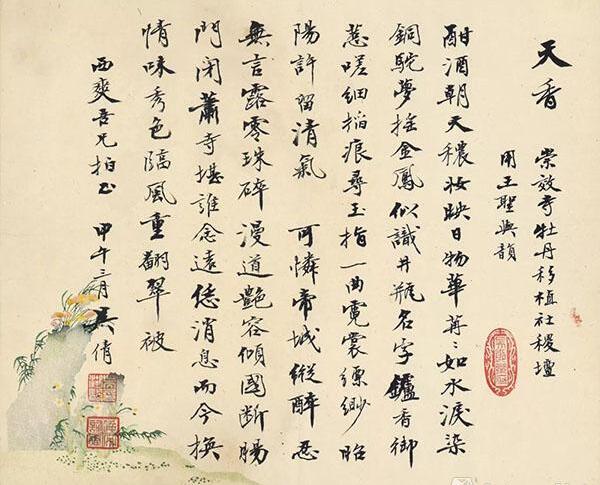 天香
崇效寺牡丹移植社稷壇
用王聖與韻
酣酒朝天穠妝映日物華苒〻如水淚染
銅駝夢搖金鳳似識井瓶名字鑪香御
惹嗟細掐痕尋玉指一曲霓裳縹緲昭
陽許留清氣 可憐帝城縱醉忍
無言露零珠碎漫道艷容傾國斷腸
門閉蕭寺堪誰念遠消息而今換
情味秀色臨風重翻翠被
西爽吾兄拍正 甲午三月 吳倩